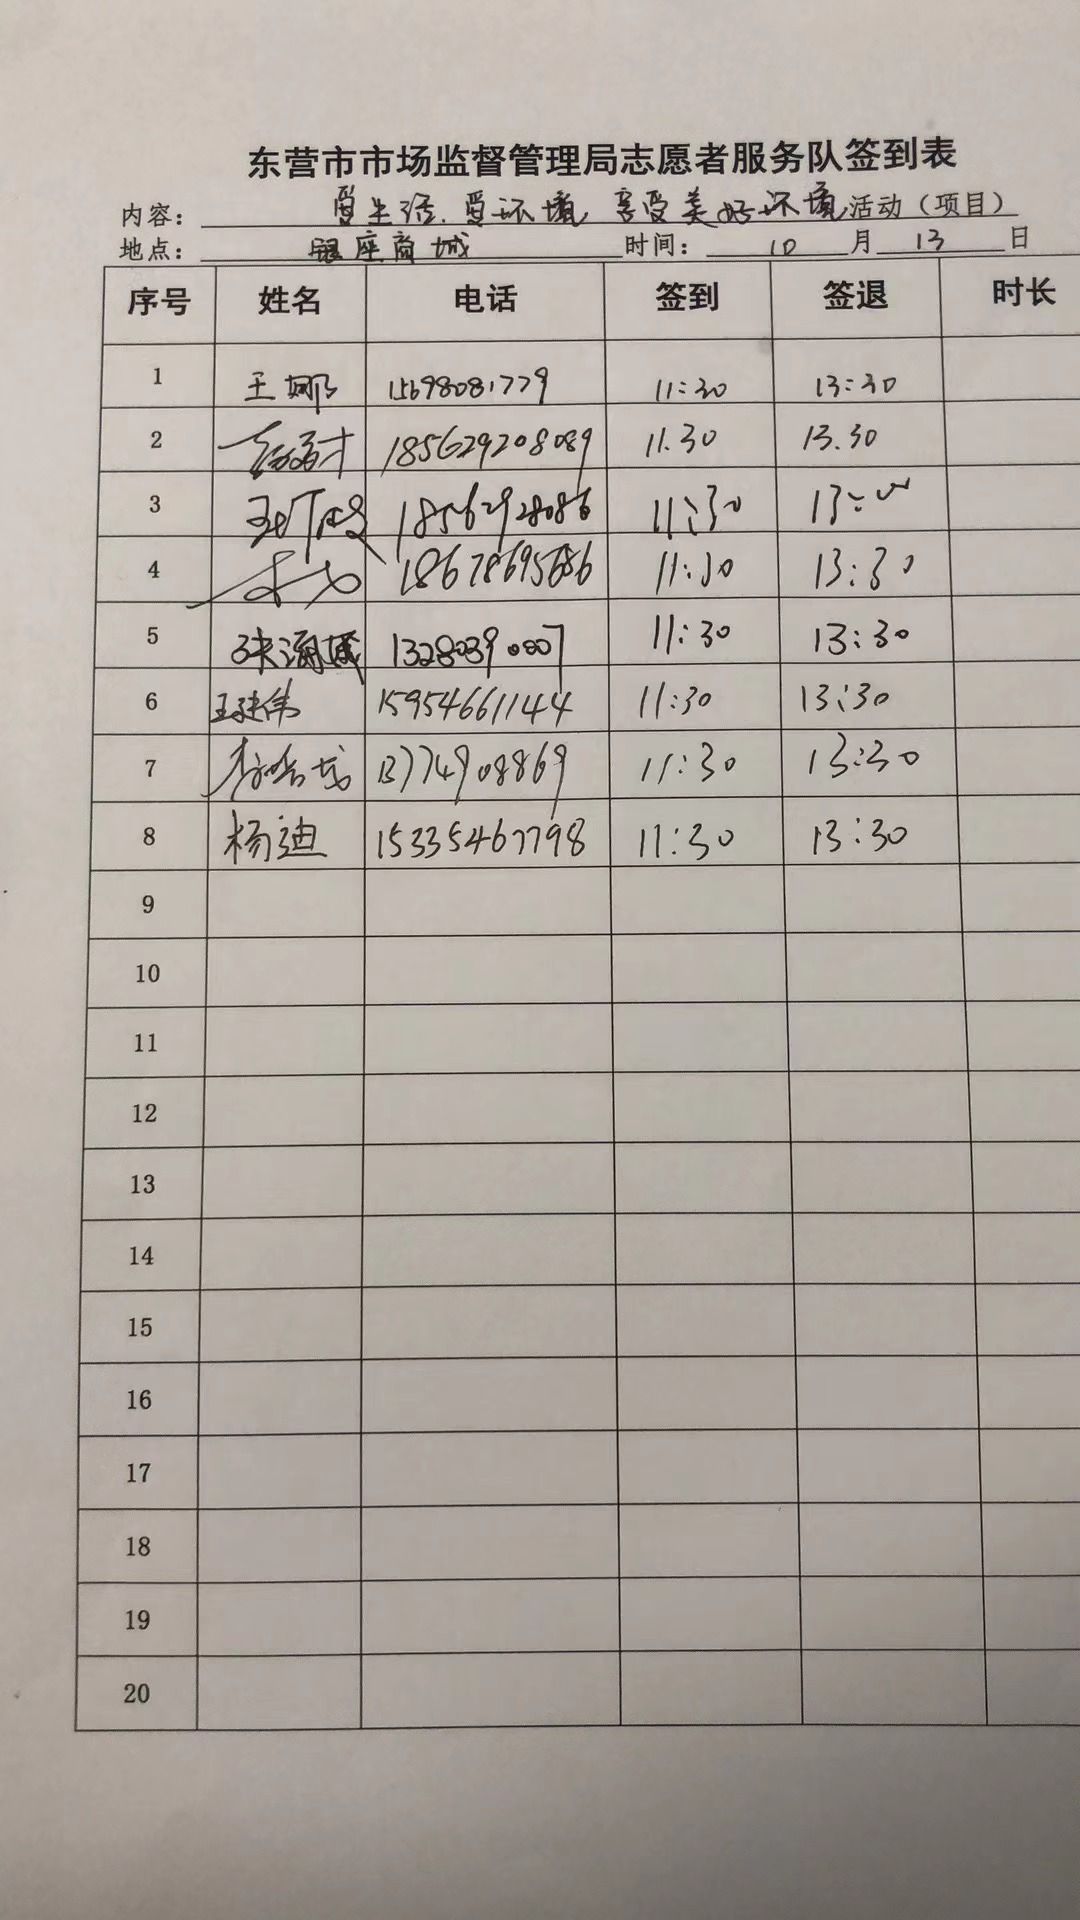 东营市市场监督管理局志愿者服务队签到表
内容：爱生活.爱环境,享受美好环境活动（项目）
地点：银座商城 时间：10月13日
序号 姓名 电话 签到 签退 时长
1 王娜 15698081779 11:30 13:30
2 185629208089 11.30 13.30
3 18562928086 11:30
4 11:30 13:30
5 13280390007 11:30 13:30
6 王建伟 15954661144 11:30 13:30
7 13774908869 11:30 13:30
8 杨迪 15335467798 11:30 13:30
9
10
11
12
13
14
15
16
17
18
19
20